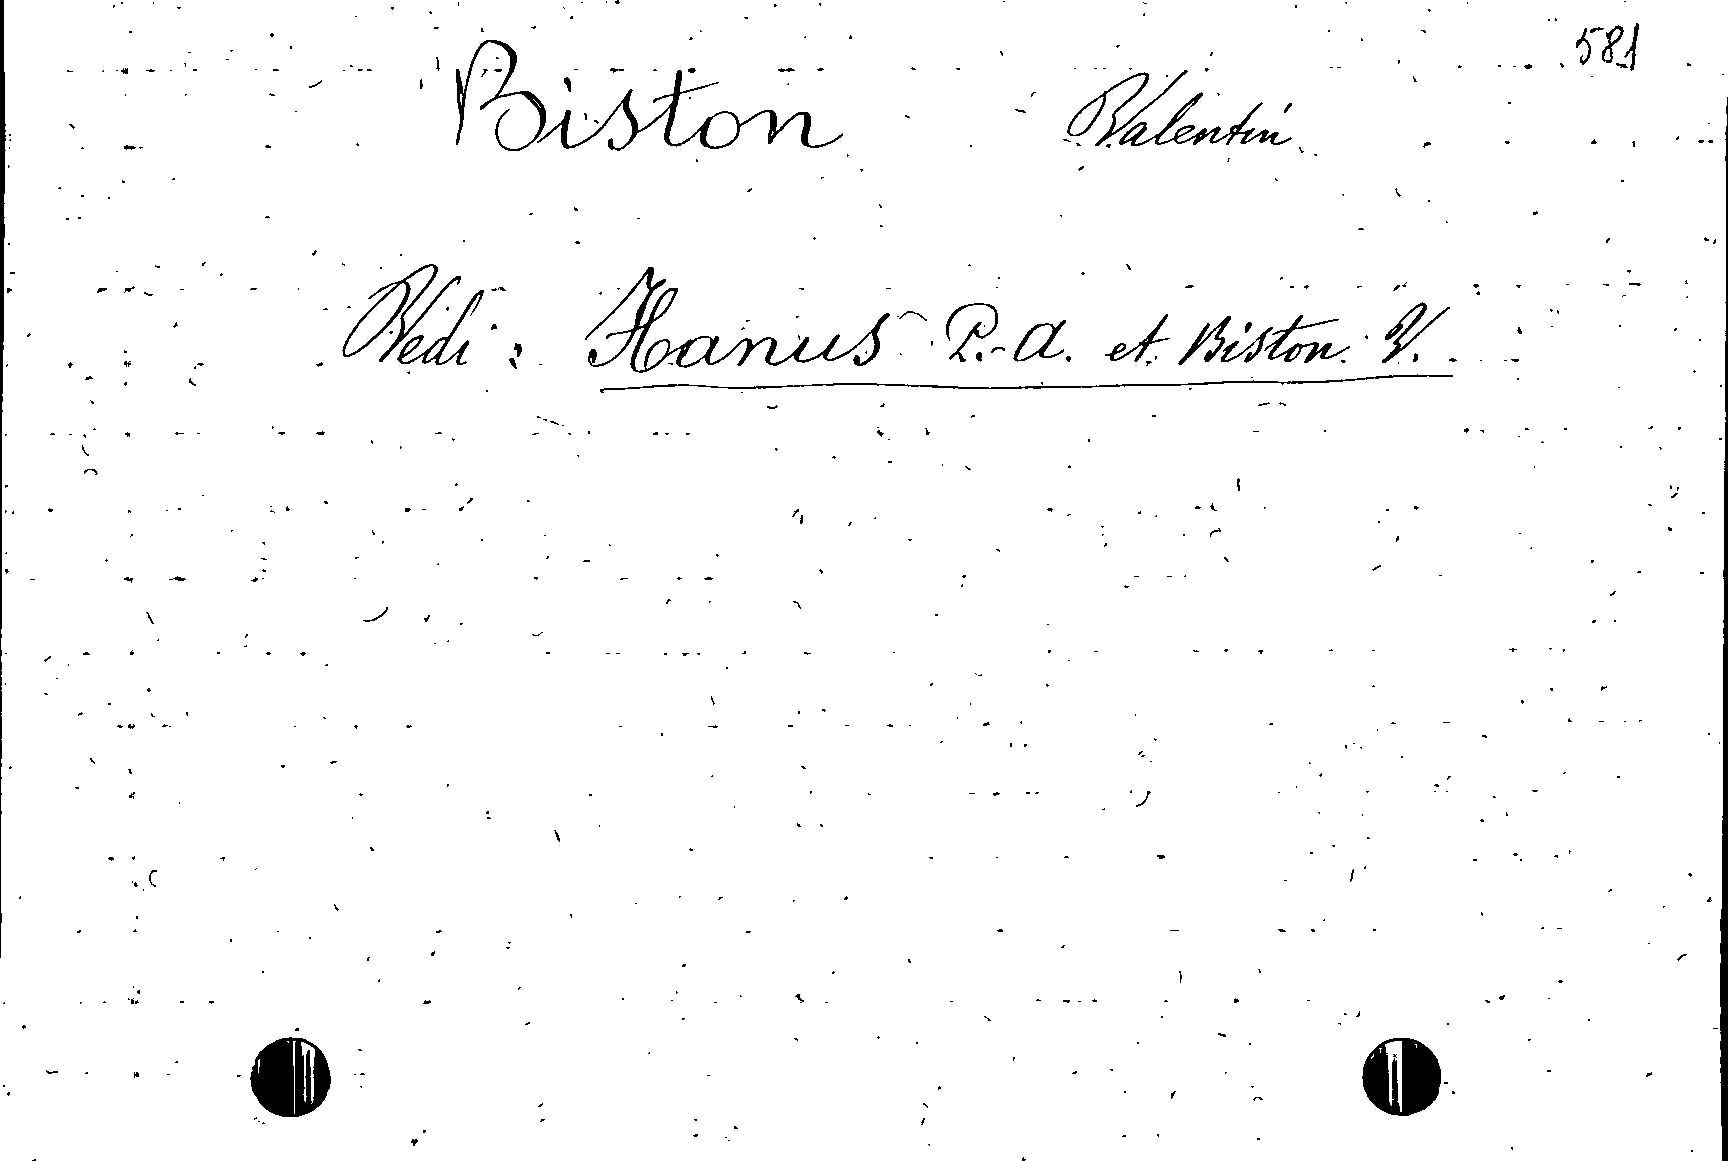 581
Biston Valentin
Vedi : Hanus P.-A. et Biston V.